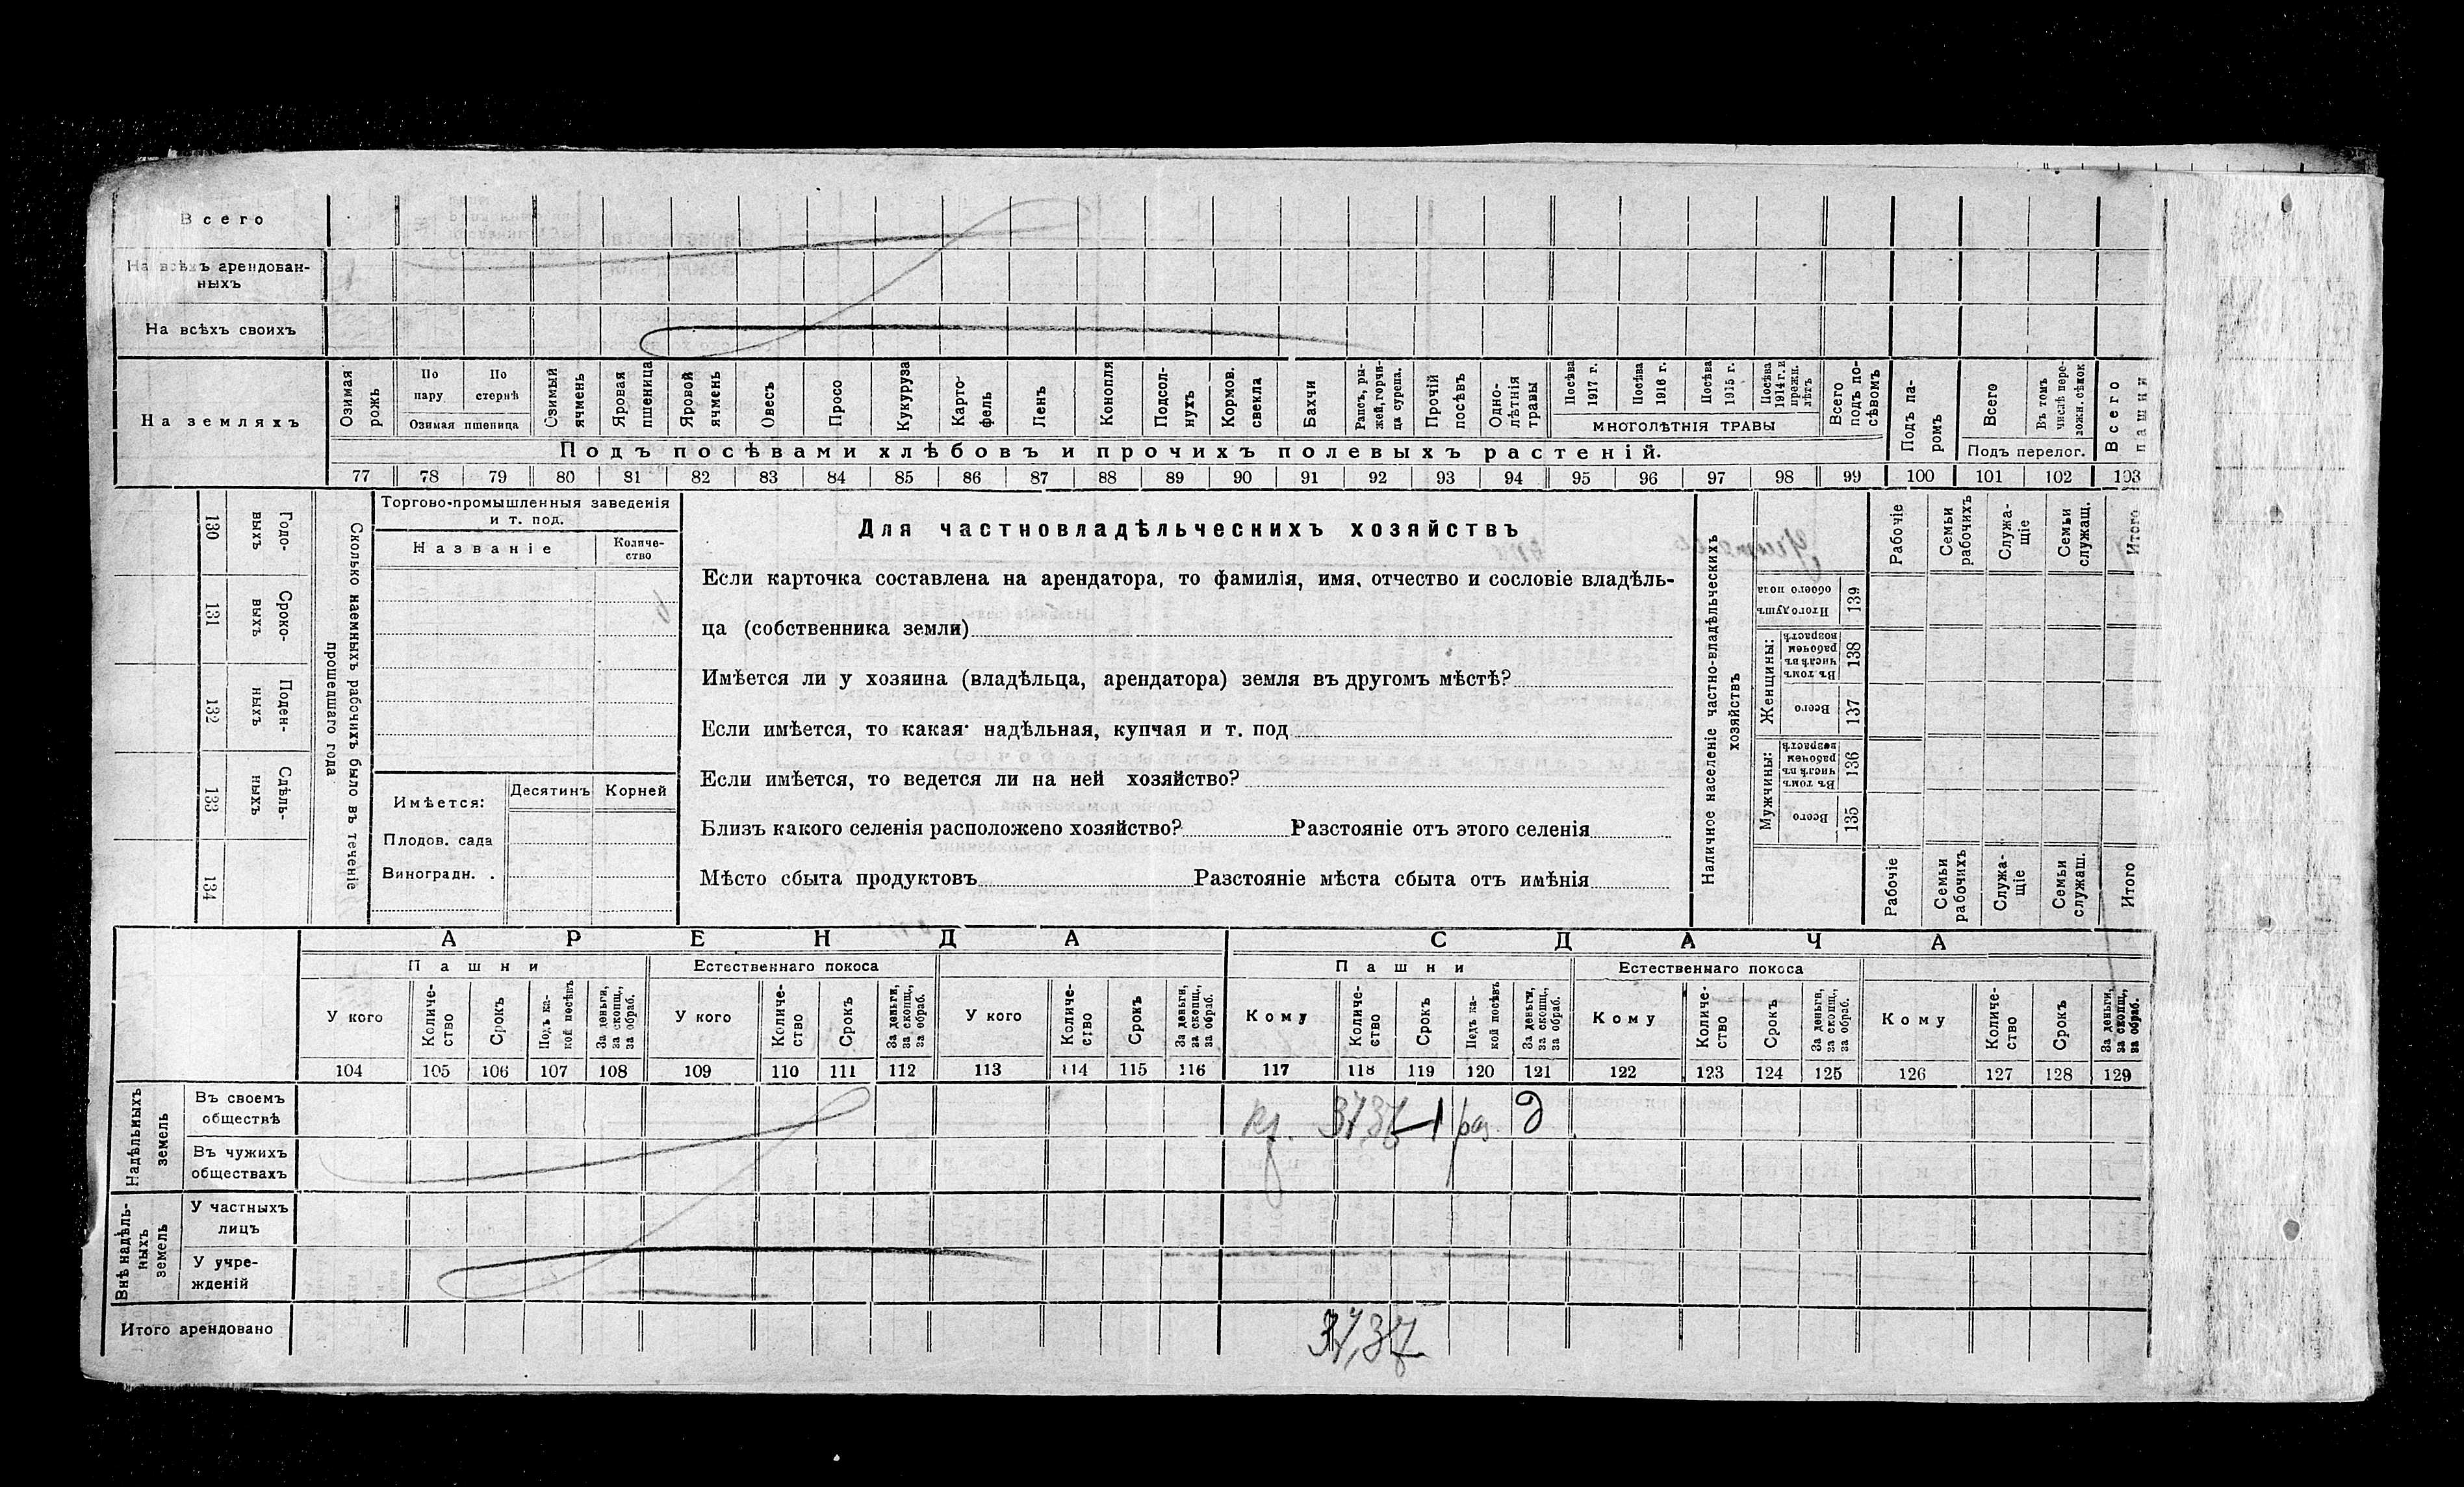 Всего
На всѣхъ арендован-
ныхъ
На всѣхъ своихъ
На земляхъ
Озимая рожь
По пару
По стернѣ
Озимая пшеница
Озимый ячмень
Яровая пшеница
Яровой ячмень
Овесъ
Просо
Кукуруза
Карто-
фель
Ленъ
Конопля
Подсол-
нухъ
Кормов. свекла
Бахчи
Рапсъ, ры-
жей, горчи-
ца сурепа.
Прочій посѣвъ
Одно-
лѣтнія травы
Посѣва 1917 г.
Посѣва 1916 г.
Посѣва 1915 г.
Посѣва 1914 г. и прежн. лѣтъ
МНОГОЛѢТНІЯ ТРАВЫ
Всего подъ по-
сѣвомъ
Подъ па-
ромъ
Всего
Въ томъ числѣ пере-
ложн. сѣнок.
Подъ перелог.
Всего пашни
Подъ посѣвами хлѣбовъ и прочихъ полевыхъ растеній.
77 78 79 80 81 82 83 84 85 86 87 88 89 90 91 92 93 94 95 96 97 98 99 100 101 102 103
Годо-
выхъ
130
Сроко-
выхъ
131
Поден-
ныхъ
132
Сдѣль-
ныхъ
133
134
Сколько наемныхъ рабочихъ было въ теченіе
прошедшаго года
Торгово-промышленныя заведенія
и т. под.
Названіе
Количе-
ство
Имѣется:
Десятинъ
Корней
Плодов. сада
Виноградн. .
Для частновладѣльческихъ хозяйствъ
Если карточка составлена на арендатора, то фамилія, имя, отчество и сословіе владѣль-
ца (собственника земли)
Имѣется ли у хозяина (владѣльца, арендатора) земля въ другомъ мѣстѣ?
Если имѣется, то какая· надѣльная, купчая и т. под
Если имѣется, то ведется ли на ней хозяйство?
Близъ какого селенія расположено хозяйство? Разстояніе отъ этого селенія
Мѣсто сбыта продуктовъ Разстояніе мѣста сбыта отъ имѣнія
Наличное населеніе частно-владѣльческихъ
хозяйствъ
Рабочіе
Семьи рабочихъ
Служа-
щіе
Семьи служащ.
Итого
Итого душъ обоего пола
139
Женщины:
Въ томъ числѣ въ рабочем возрастѣ
138
Всего
137
Мужчины:
Въ томъ числѣ въ рабочем возрастѣ
136
Всего
135
Рабочіе
Семьи рабочихъ
Служа-
щіе
Семьи служащ.
Итого
АРЕНДА
СДАЧА
Пашни
Естественнаго покоса
Пашни
Естественнаго покоса
У кого
Количе-
ство
Срокъ
Подъ ка-
кой посѣвъ
За деньги, за скопщ., за обраб.
У кого
Количе-
ство
Срокъ
За деньги, за скопщ., за обраб.
У кого
Количе-
ство
Срокъ
За деньги, за скопщ., за обраб.
Кому
Количе-
ство
Срокъ
Подъ ка-
кой посѣвъ
За деньги, за скопщ., за обраб.
Кому
Количе-
ство
Срокъ
За деньги, за скопщ., за обраб.
Кому
Количе-
ство
Срокъ
За деньги, за скопщ., за обраб.
104 105 106 107 108 109 110 111 112 113 114 115 116 117 118 119 120 121 122 123 124 125 126 127 128 129
Надѣльныхъ земель
Въ своемъ
обществѣ
37,37 1 раз. д
Въ чужихъ
обществахъ
Внѣ надѣль-
ныхъ земель
У частныхъ
лицъ
У учре-
жденій
Итого арендовано
37,37